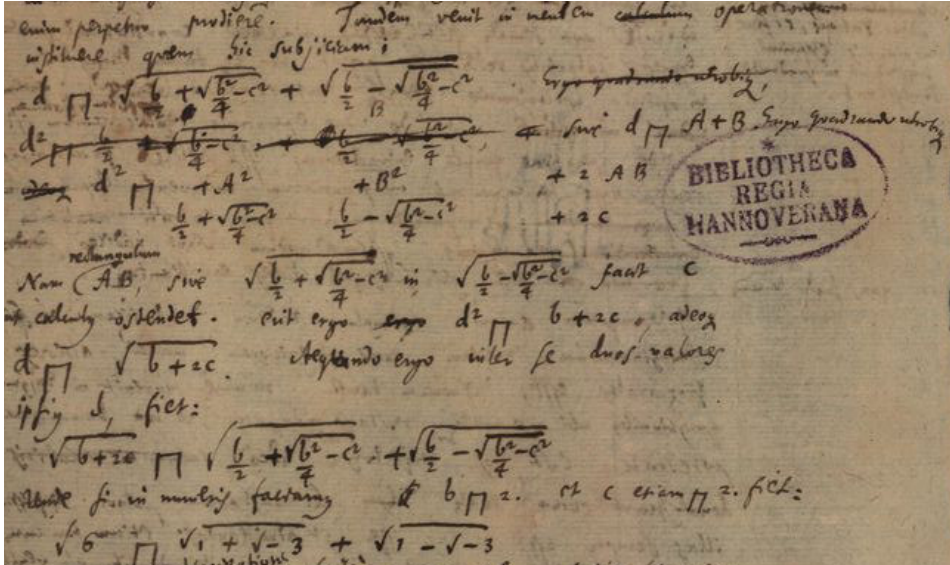 enim perpetuo prodiere. Tandem venit in mentem calculum operationem
instituere quem hic subjiciam:
d ⊓ √(b/2 + √(b²/4 − c²)) + √(b/2 − √(b²/4 − c²)) Ergo quadrando utrobiq,
B
d² ⊓ b/2 + √(b²/4 − c²), + b/2 √(b²/4 − c²), sive d ⊓ A + B. Ergo quadrando utrobiq
d² ⊓ + A² + B² + 2 AB
b/2 + √(b²/4 − c²) b/2 − √(b²/4 − c²) + 2c
BIBLIOTHECA
REGIA
HANNOVERANA
rectangulum
Nam AB, sive √(b/2 + √(b²/4 − c²)) in √(b/2 − √(b²/4 − c²)) facit c
ut calculus ostendet. erit ergo ergo d² ⊓ b + 2c, adeoq
d ⊓ √(b + 2c). Aequando ergo inter se duos valores
ipsius d, fiet:
√(b + 2c) ⊓ √(b/2 + √(b²/4 − c²)) + √(b/2 − √(b²/4 − c²))
si in numeris faciamus b ⊓ 2. et c etiam ⊓ 2. fiet:
√6 ⊓ √(1 + √−3) + √(1 − √−3)